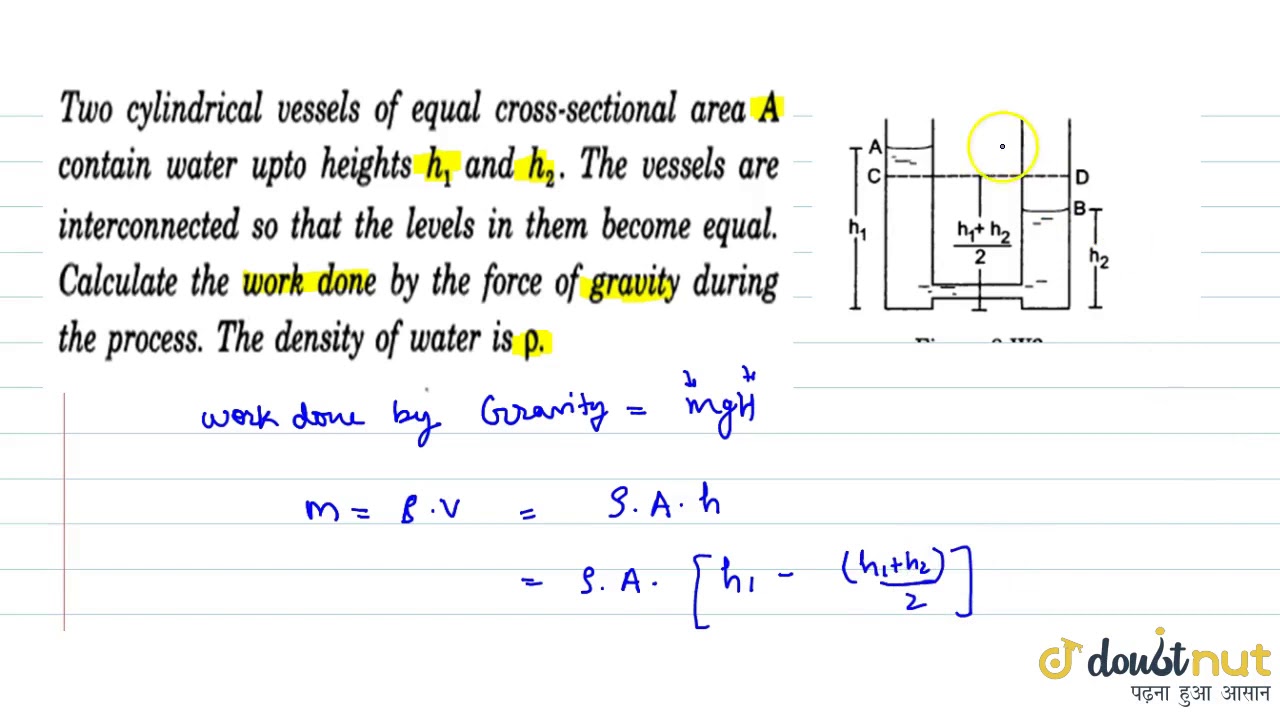 Two cylindrical vessels of equal cross-sectional area A
contain water upto heights h₁ and h₂. The vessels are
interconnected so that the levels in them become equal.
Calculate the work done by the force of gravity during
the process. The density of water is ρ.
A
C
h₁
h₁+ h₂
2
D
B
h₂
work done by Gravity = mgH
m = ρ . V = ρ. A . h
= ρ. A . [ h₁ - (h₁+h₂)
2 ]
doubtnut
पढ़ना हुआ आसान